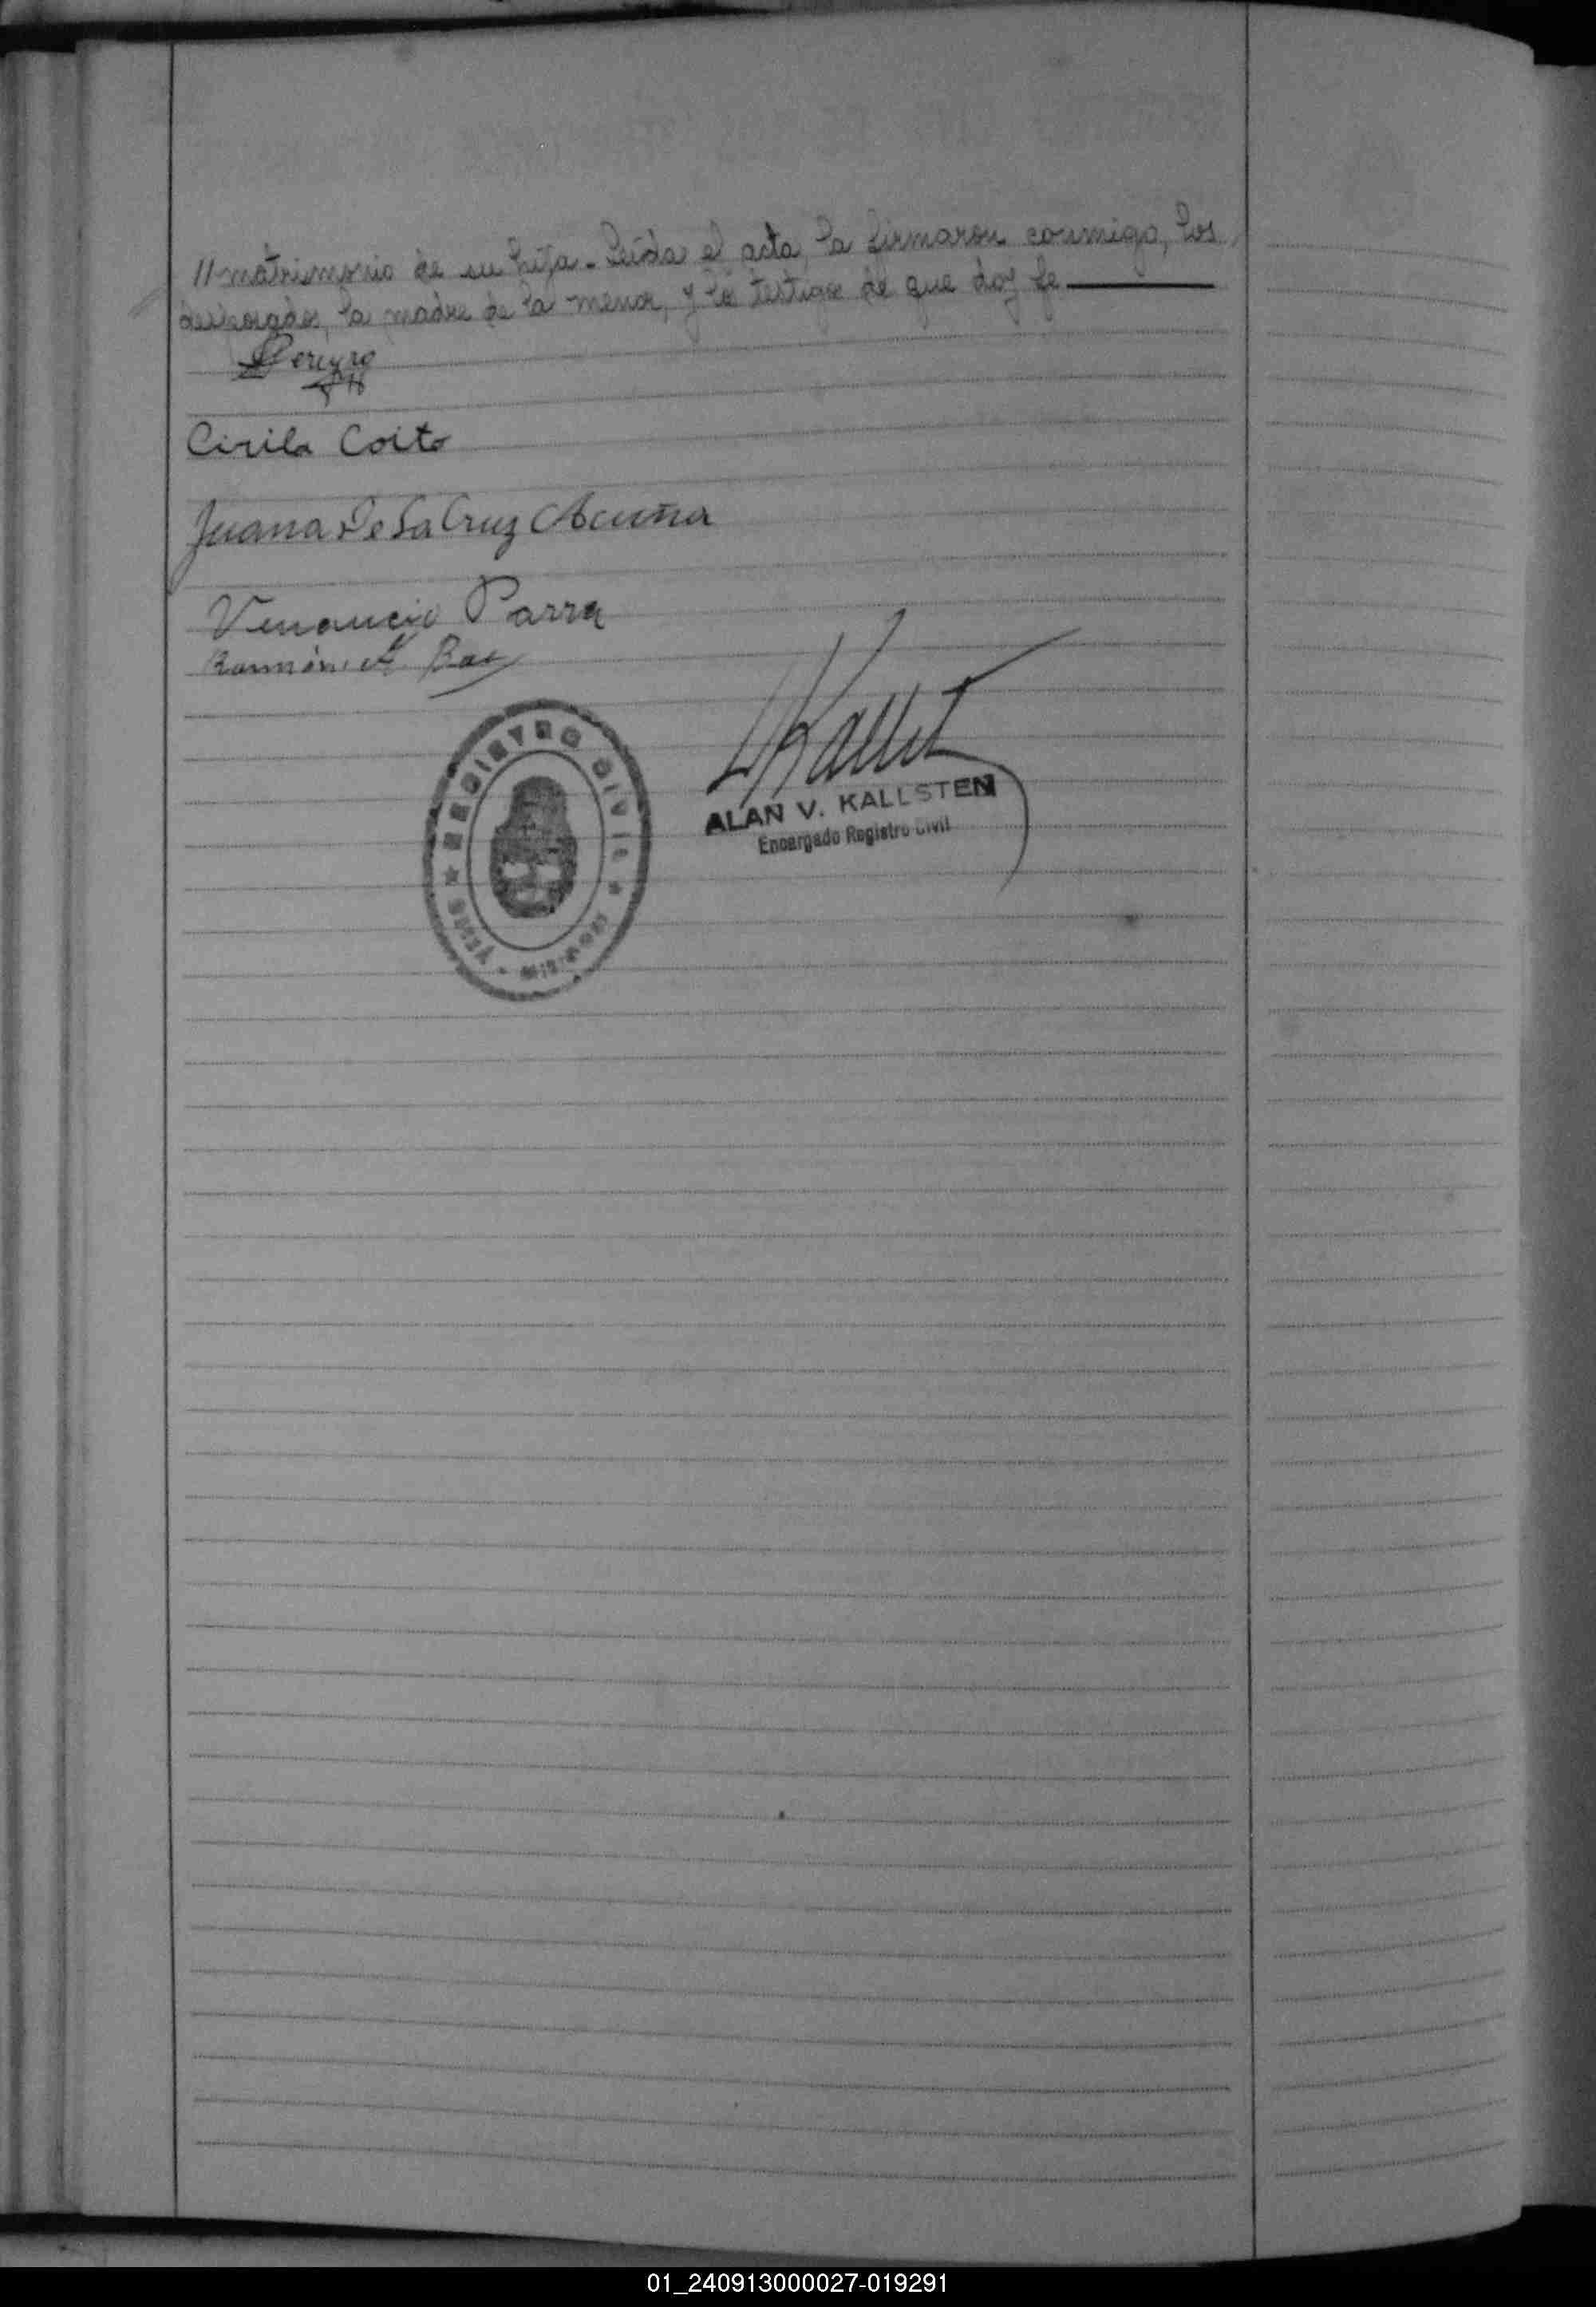 //matrimonio de su hija.- Leída el acta, la firmaron conmigo, los
desposados, la madre de la menor, y los testigos de que doy fe
Pereyra
Cirila Coito
Juana De La Cruz Acuña
Venancio Parra
Ramón A.
REGISTRO CIVIL
MISIONES
ALAN V. KALLSTEN
Encargado Registro Civil
01_240913000027-019291